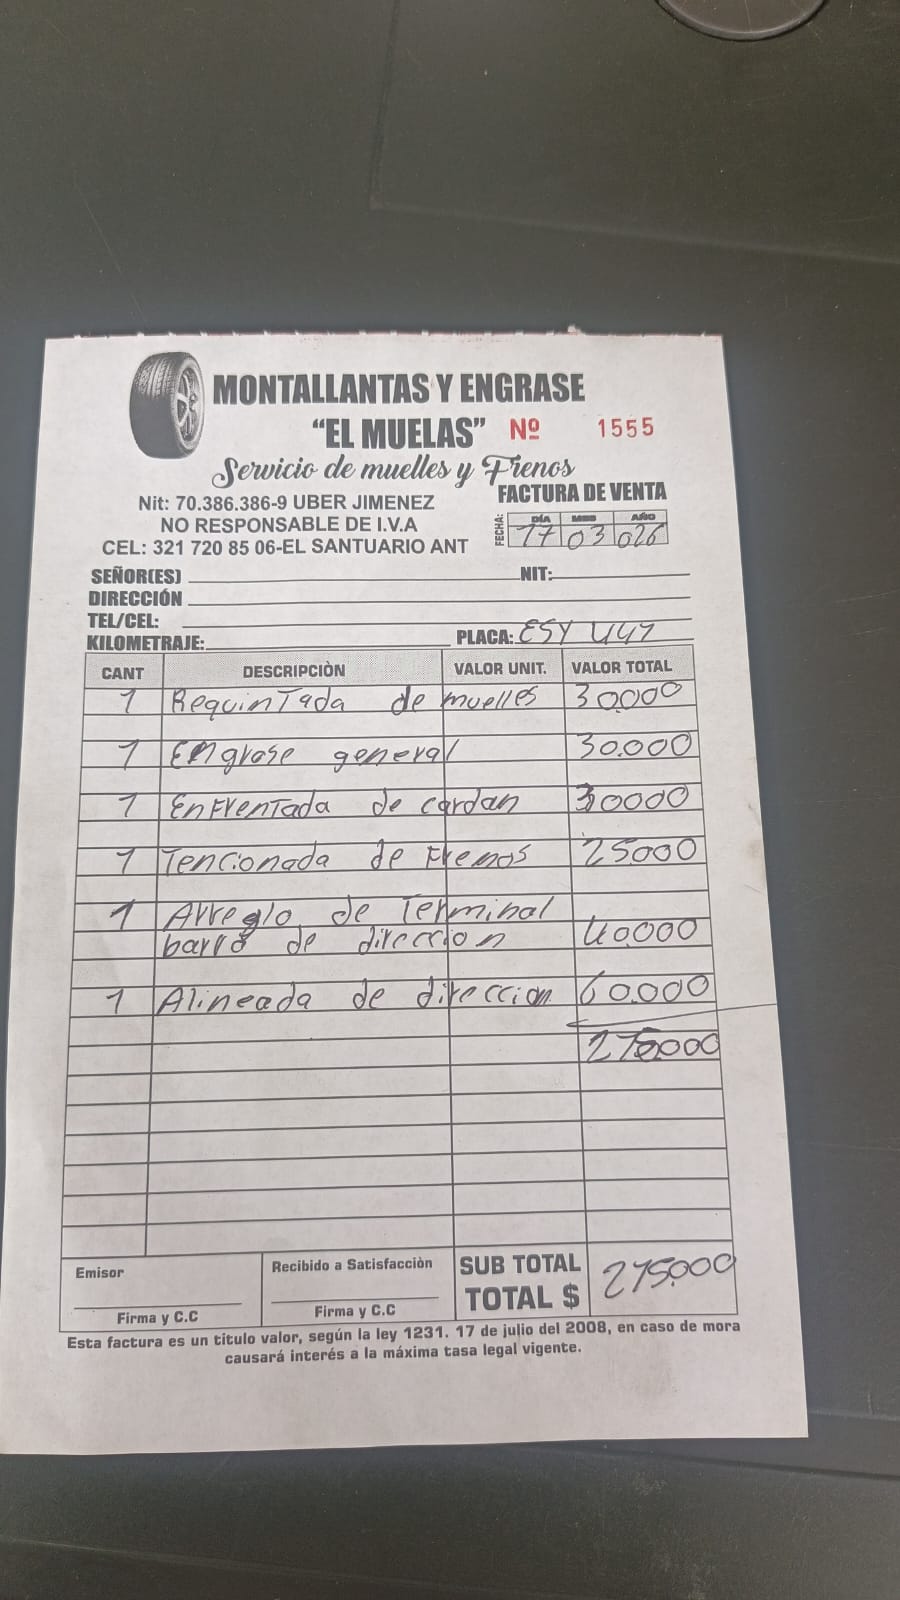 MONTALLANTAS Y ENGRASE
"EL MUELAS" Nº 1555
Servicio de muelles y Frenos
FACTURA DE VENTA
Nit: 70.386.386-9 UBER JIMENEZ
NO RESPONSABLE DE I.V.A
CEL: 321 720 85 06-EL SANTUARIO ANT
FECHA: DÍA MES AÑO
17 03 026
SEÑOR(ES) NIT:
DIRECCIÓN
TEL/CEL:
KILOMETRAJE: PLACA: ESY
CANT DESCRIPCIÒN VALOR UNIT. VALOR TOTAL
1 Requintada de muelles 30.000
1 Engrase general 30.000
1 Enfrentada de cardan 30000
1 Tencionada de Frenos 25000
1 Arreglo de Terminal
barra de direccion 40.000
1 Alineada de direccion 60.000
275.000
Emisor Recibido a Satisfacciòn SUB TOTAL
TOTAL $ 275.000
Firma y C.C Firma y C.C
Esta factura es un titulo valor, según la ley 1231. 17 de julio del 2008, en caso de mora
causará interés a la máxima tasa legal vigente.